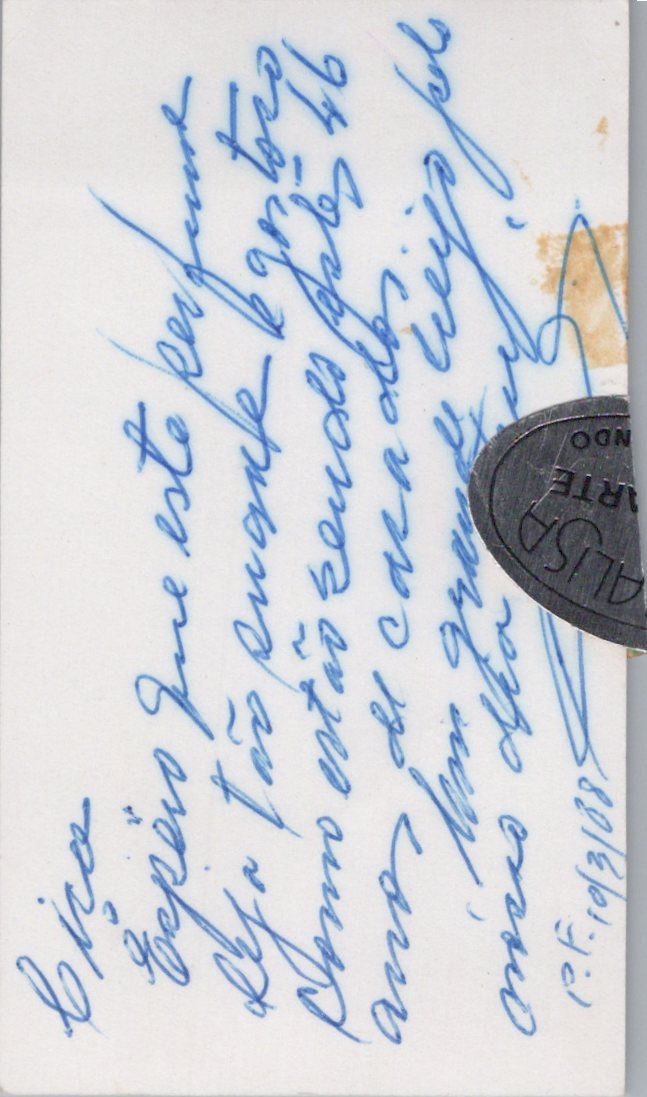 Ciça
Espero que este perfume
seja tão suave e gostoso
como estão sendo estes 46
anos de casados.
Um grande beijo pelo
nosso dia
P.F. 10/3/88
ALISA
ARTE
NDO